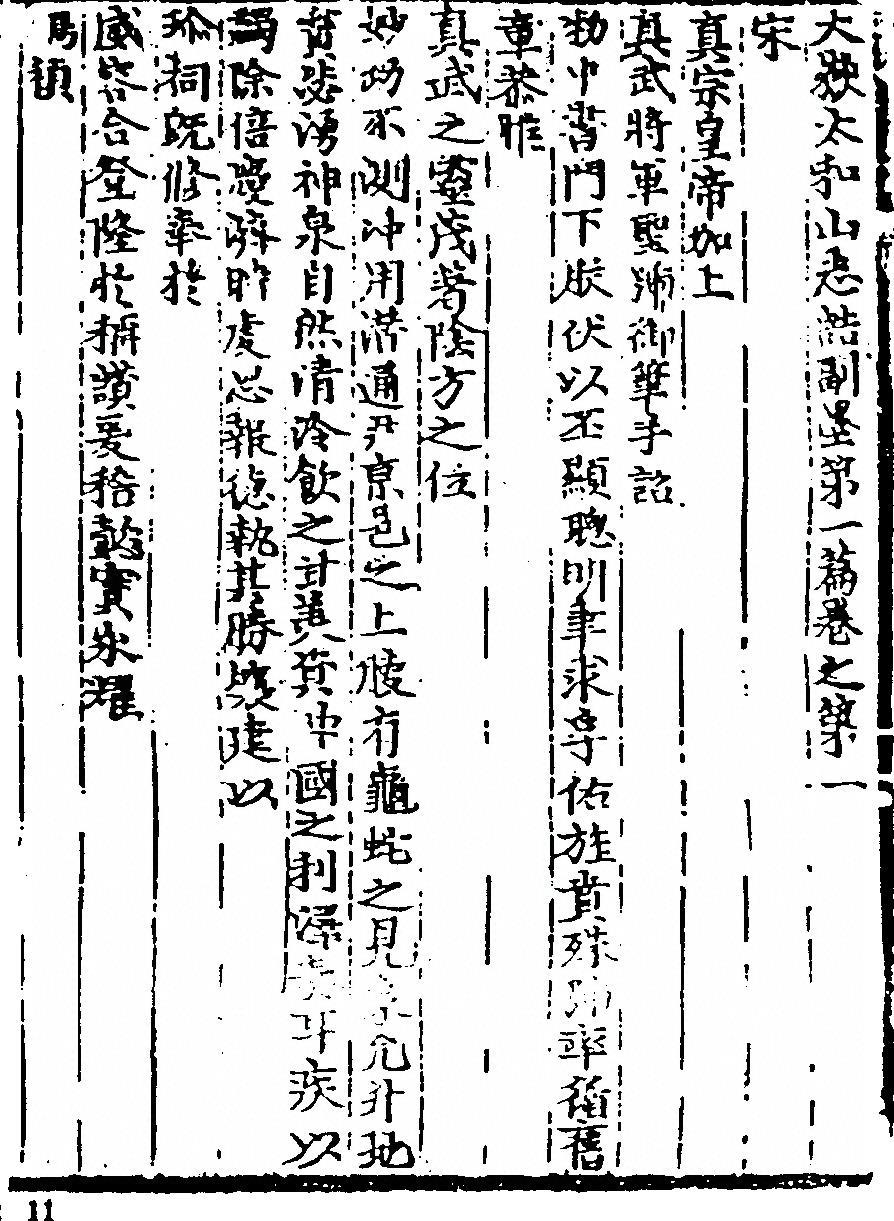 大嶽太和山志誥副墨第一篇卷之第一
宋
真宗皇帝加上
真武將軍聖號御筆手詔
勑中書門下朕伏以丕顯聰明聿求孚佑旌賁殊號率循舊
章恭惟
真武之靈茂著陰方之位
妙功不測沖用潛通京邑之上腴有龜蛇之見允升地
神泉自然清泠飲之甘中國之利疾以
蠲除倍慶昨虔思報德執其勝壤建以
珍祠既修奉於
威容合登隆於稱讚爰稽懿實永耀